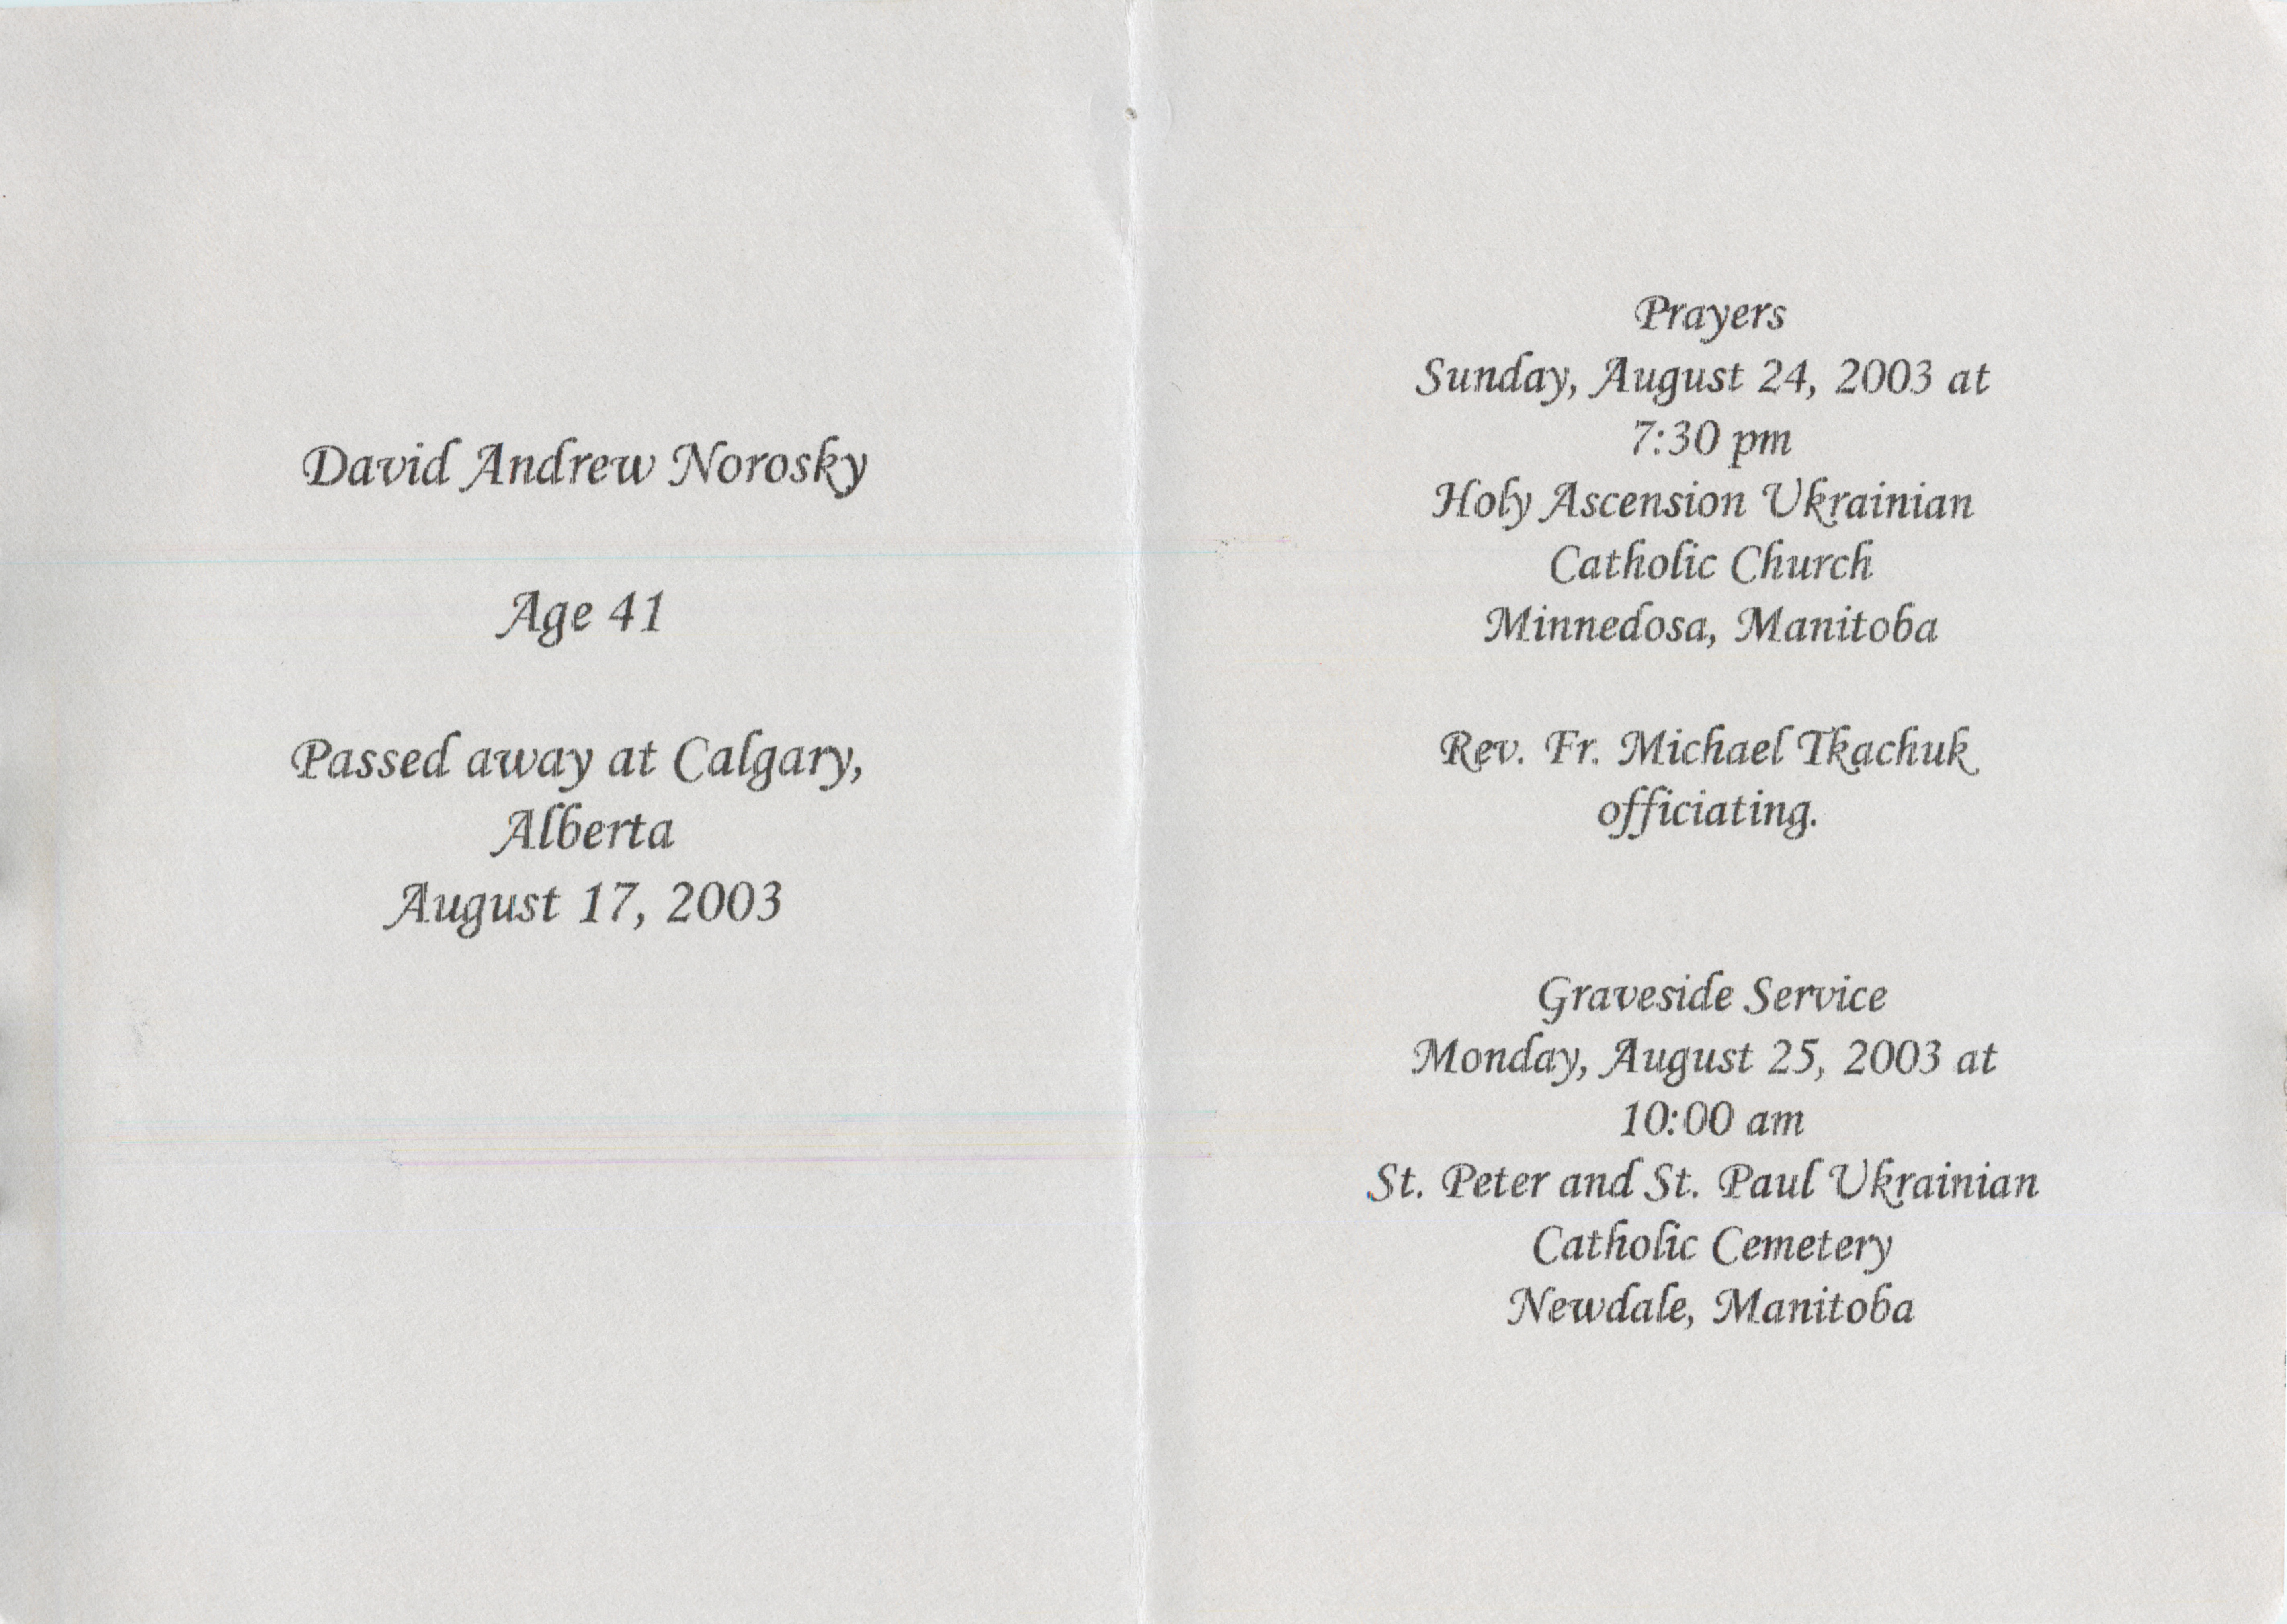 David Andrew Norosky
Age 41
Passed away at Calgary,
Alberta
August 17, 2003
Prayers
Sunday, August 24, 2003 at
7:30 pm
Holy Ascension Ukrainian
Catholic Church
Minnedosa, Manitoba
Rev. Fr. Michael Tkachuk
officiating.
Graveside Service
Monday, August 25, 2003 at
10:00 am
St. Peter and St. Paul Ukrainian
Catholic Cemetery
Newdale, Manitoba